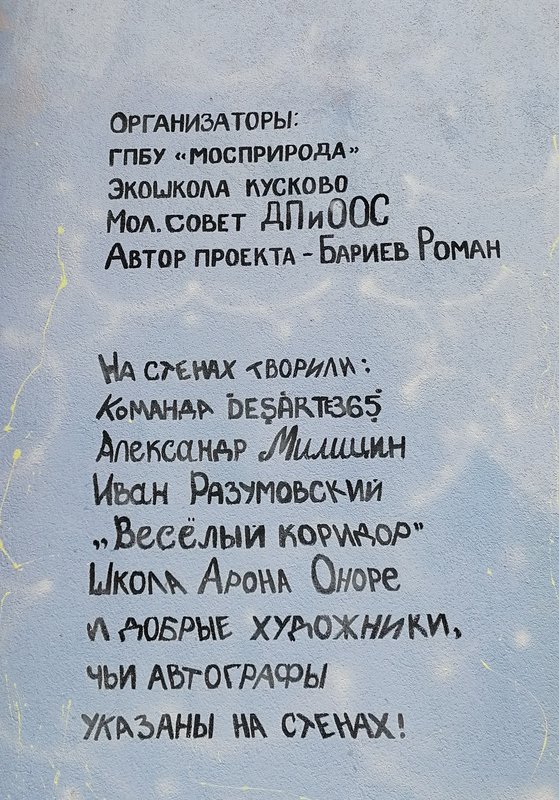 Организаторы:
ГПБУ «Мосприрода»
Экошкола Кусково
Мол. совет ДПиООС
Автор проекта - Бариев Роман
На стенах творили:
Команда DESART365
Александр Милицин
Иван Разумовский
„Весёлый коридор"
Школа Арона Оноре
и добрые художники,
чьи автографы
указаны на стенах!